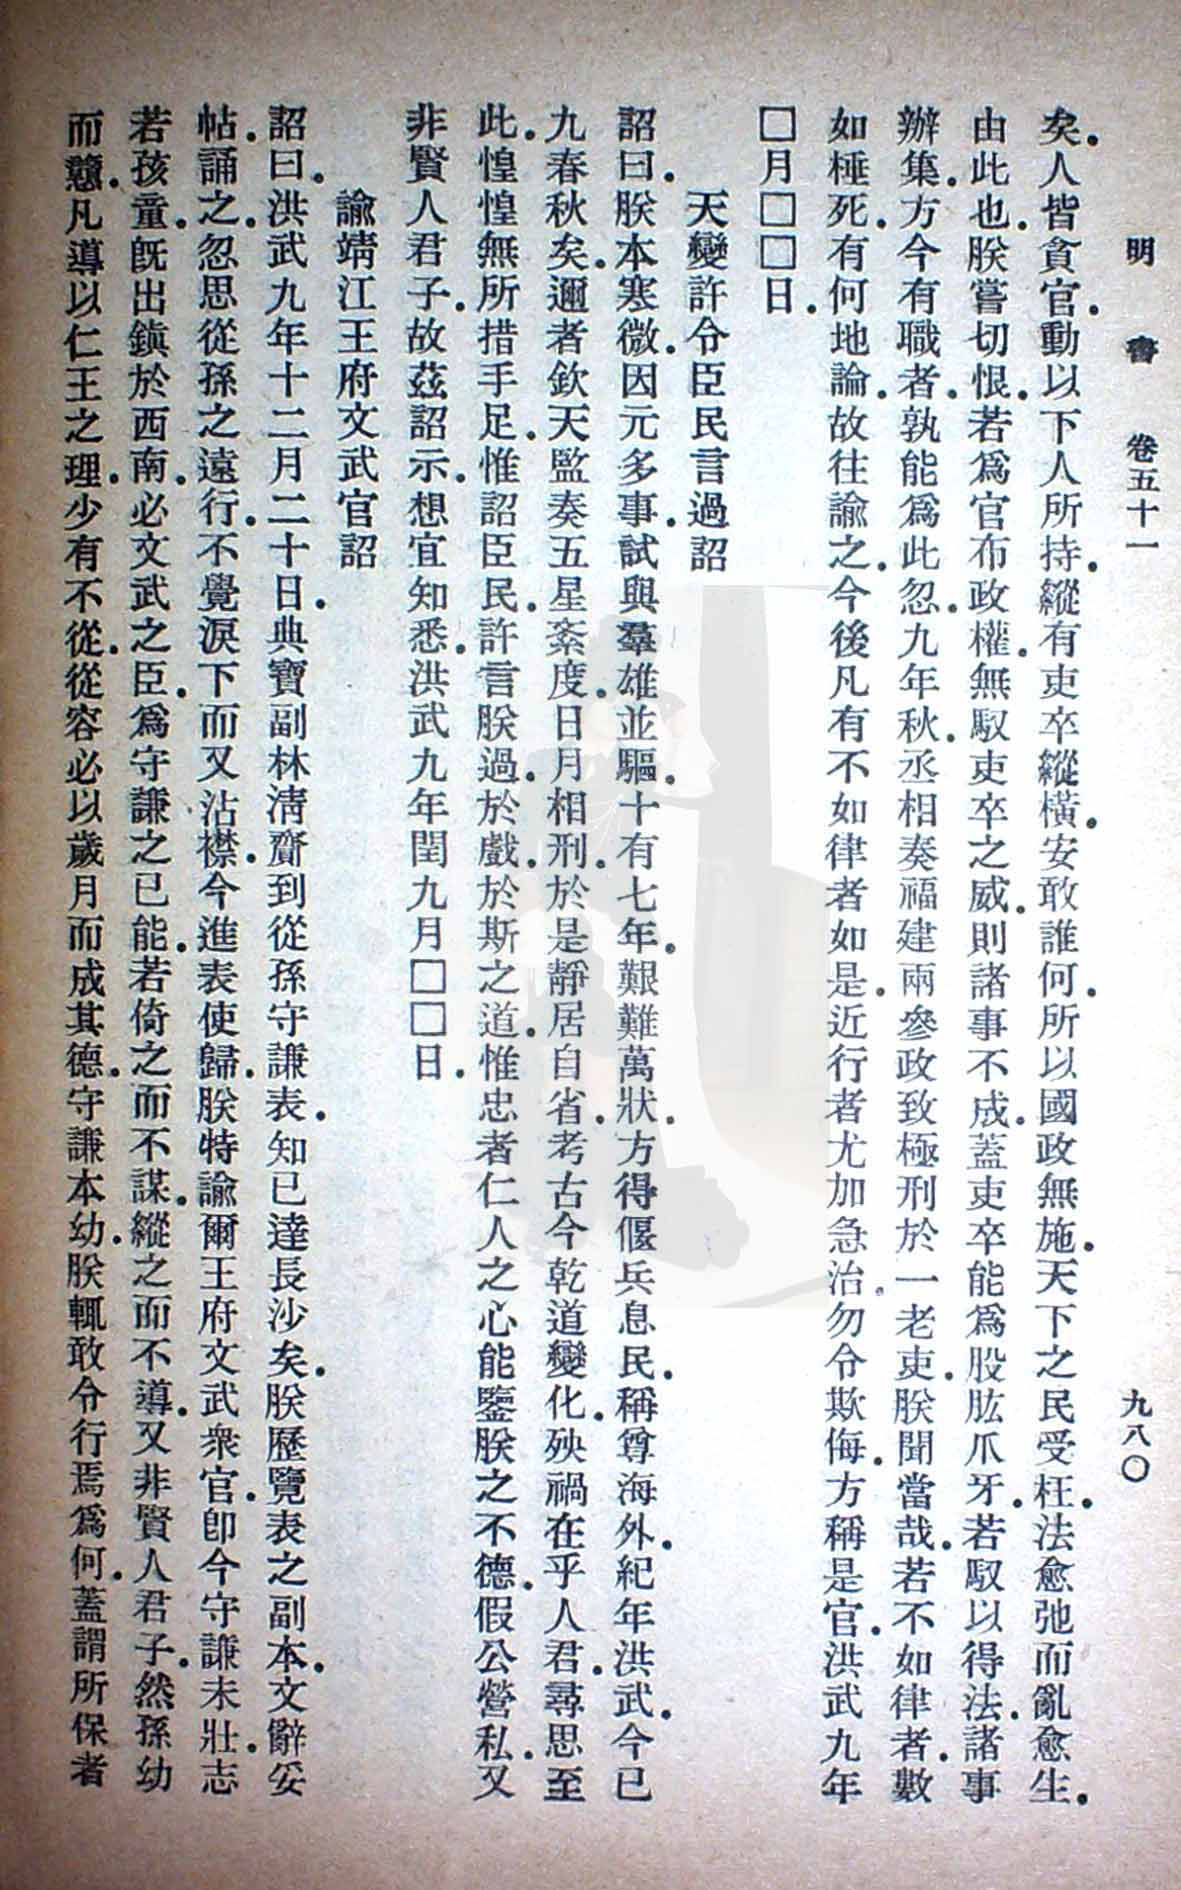 明書 卷五十一 九八〇
矣．人皆貪官．動以下人所持．縱有吏卒縱橫．安敢誰何．所以國政無施．天下之民受枉．法愈弛而亂愈生．
由此也．朕嘗切恨．若爲官布政權．無馭吏卒之威．則諸事不成．蓋吏卒能爲股肱爪牙．若馭以得法．諸事
辦集．方今有職者．孰能爲此忽．九年秋．丞相奏福建兩參政致極刑於一老吏．朕聞當哉．若不如律者．數
如棰死．有何地論．故往諭之．今後凡有不如律者如是．近行者尤加急治．勿令欺侮．方稱是官．洪武九年
□月□□日．
天變許令臣民言過詔
詔曰．朕本寒微．因元多事．試與羣雄並驅．十有七年．艱難萬狀．方得偃兵息民．稱尊海外．紀年洪武．今已
九春秋矣．邇者欽天監奏五星紊度．日月相刑．於是靜居自省．考古今乾道變化．殃禍在乎人君．尋思至
此．惶惶無所措手足．惟詔臣民．許言朕過．於戲．於斯之道．惟忠者仁人之心能鑒朕之不德．假公營私．又
非賢人君子．故茲詔示．想宜知悉．洪武九年閏九月□□日．
諭靖江王府文武官詔
詔曰．洪武九年十二月二十日．典寶副林淸齎到從孫守謙表．知已達長沙矣．朕歷覽表之副本．文辭妥
帖．誦之．忽思從孫之遠行．不覺淚下而又沾襟．今進表使歸．朕特諭爾王府文武衆官．卽今守謙未壯．志
若孩童．旣出鎭於西南．必文武之臣．爲守謙之已能．若倚之而不謀．縱之而不導．又非賢人君子．然孫幼
而戇．凡導以仁王之理．少有不從．從容必以歲月而成其德．守謙本幼．朕輒敢令行焉爲何．蓋謂所保者